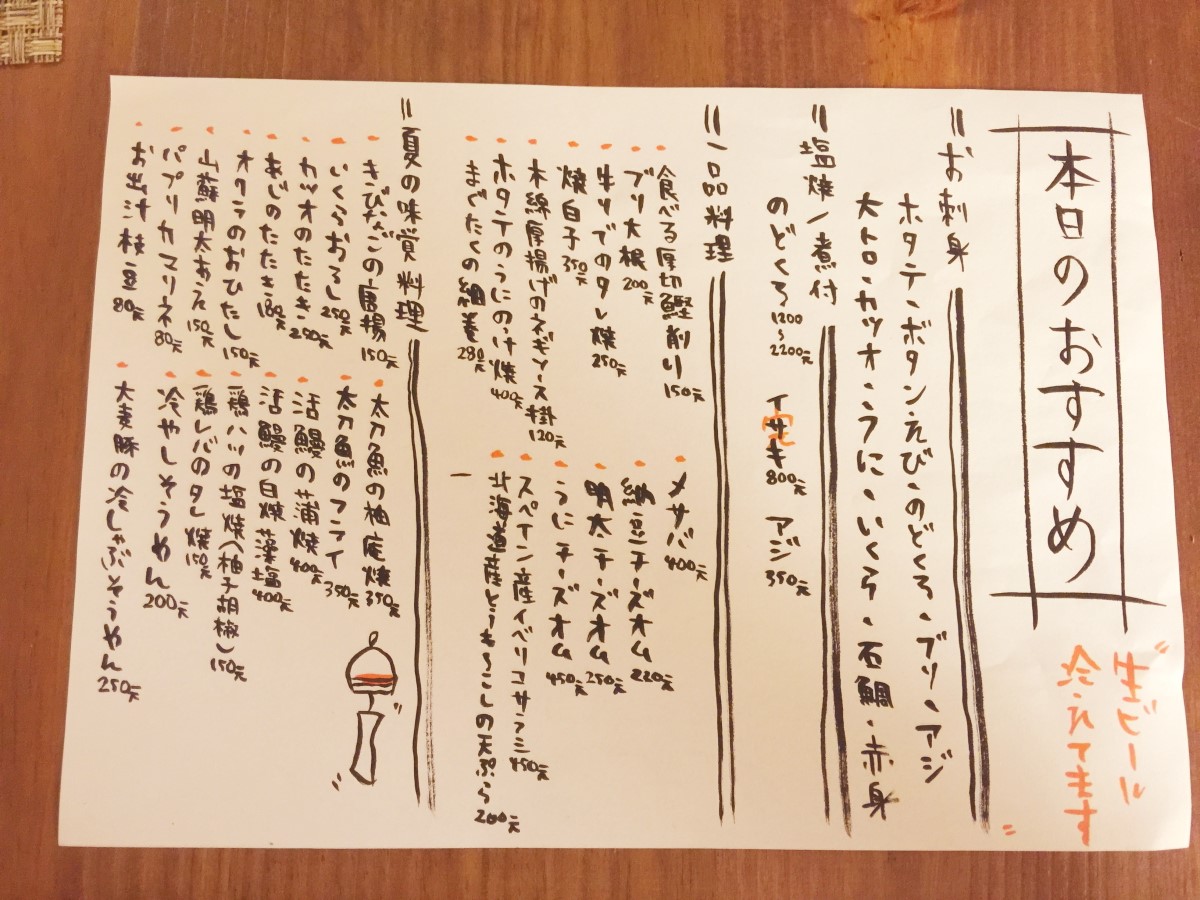 本日のおすすめ
生ビール
冷えてます
お刺身
ホタテ・ボタンえび・のどくろ・ブリ・アジ
大トロ・カツオ・うに・いくら・石鯛・赤身
塩焼/煮付
のどくろ 1200~2200元 イサキ 800元 アジ 350元
一品料理
食べる厚切鰹削り 150元
ブリ大根 200元
牛リブのタレ焼 250元
焼白子 350元
木綿厚揚げのネギソース掛 120元
ホタテのうにのっけ焼 400元
まぐたくの細巻 280元
〆サバ 400元
納豆チーズオム 220元
明太チーズオム 250元
うにチーズオム 450元
スペイン産イベリコサラミ 450元
北海道産とうもろこしの天ぷら 200元
夏の味覚料理
きびなごの唐揚 150元
いくらおろし 250元
カツオのたたき 250元
あじのたたき 180元
オクラのおひたし 150元
山蘇明太あえ 150元
パプリカマリネ 80元
お出汁枝豆 80元
太刀魚の柚庵焼 350元
太刀魚のフライ 350元
活鰻の蒲焼 400元
活鰻の白焼 藻塩 400元
鶏ハツの塩焼(柚子胡椒) 150元
鶏レバのタレ焼 150元
冷やしそうめん 200元
大妻豚の冷しゃぶそうめん 250元